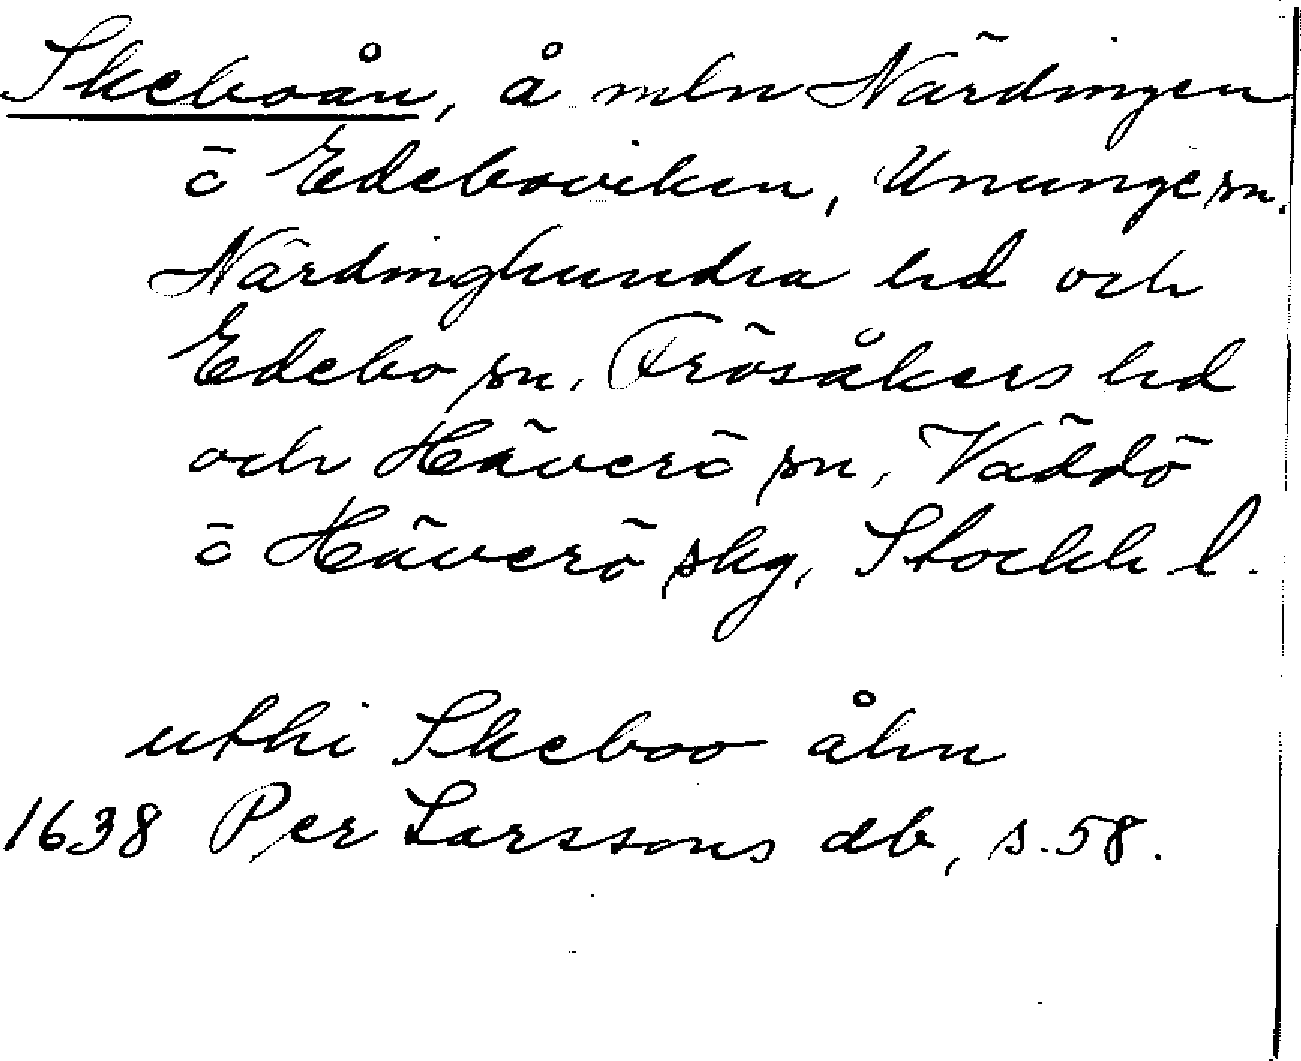 Skeboån, å mln Närdingen
ö Edeboviken, Ununge sn.
Närdinghundra hd och
Edebo sn. Frösåkers hd
och Häverö sn, Väddö
ö Häverö skg, Stockh l.
uthi Skeboo åhn
1638 Per Larssons db, s. 58.